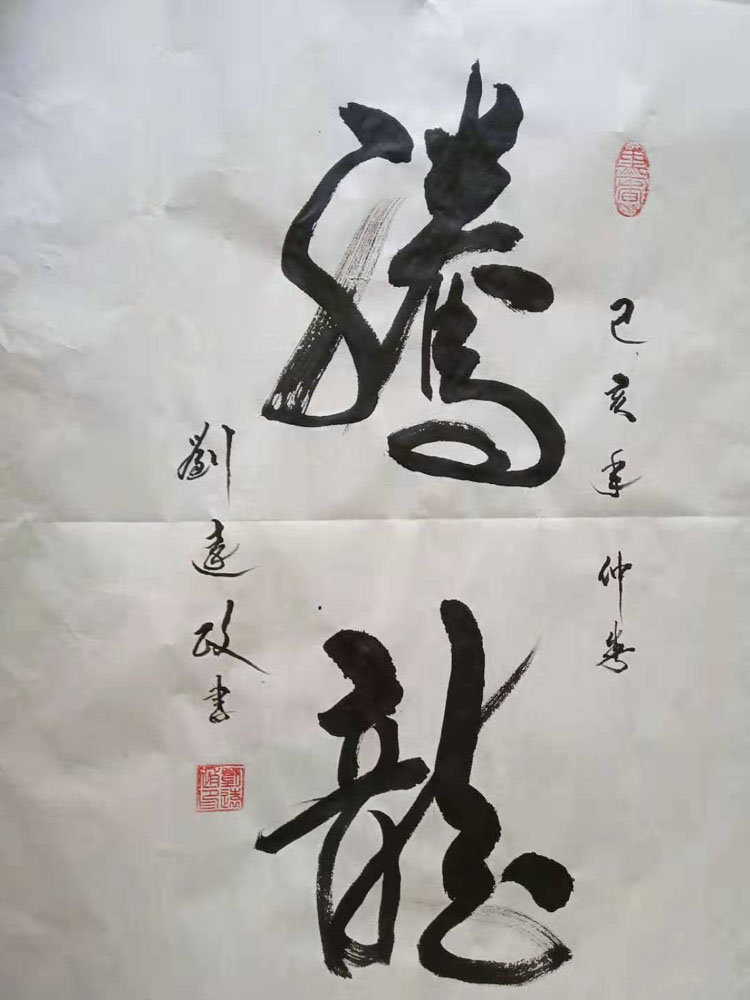 騰龍
己亥年仲春
劉遠政書